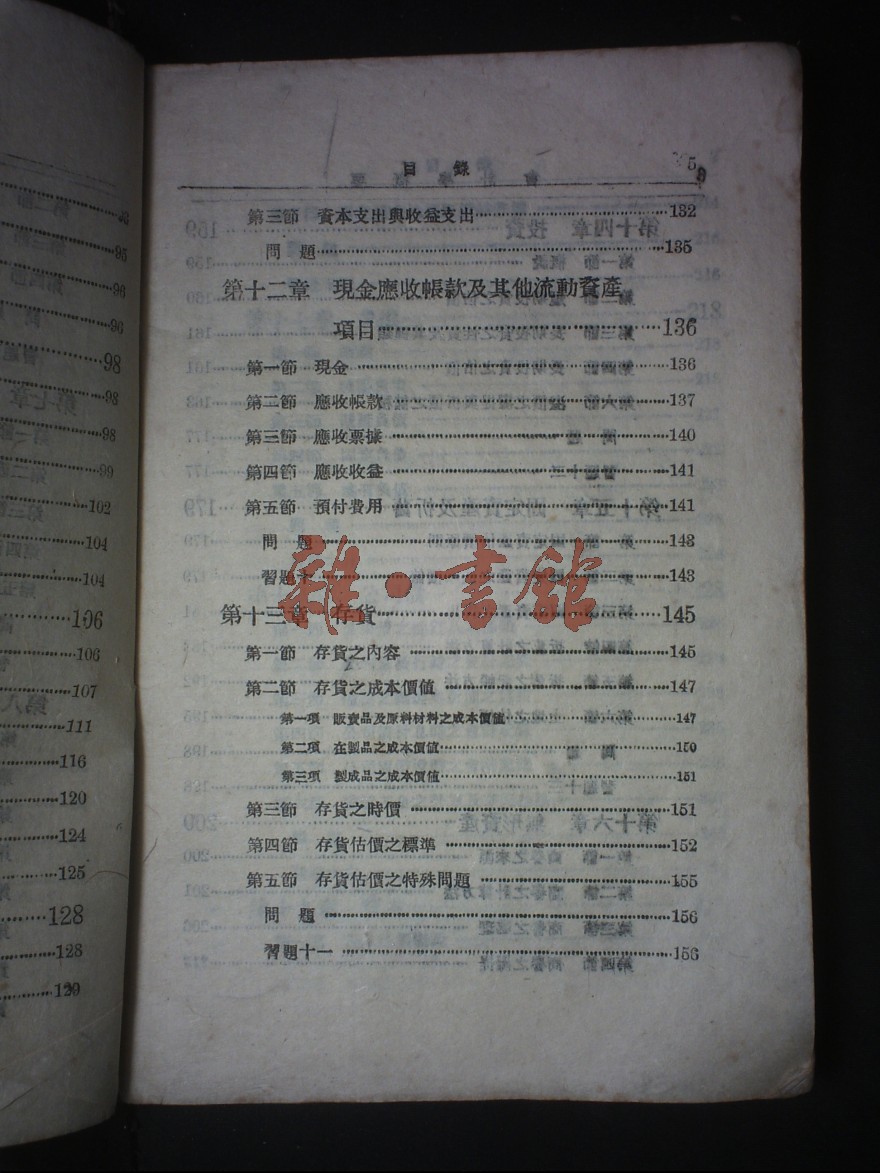 95
96
96
98
98
98
99
102
104
104
106
106
107
111
116
120
124
125
128
128
129
目 錄 5
第三節 資本支出與收益支出 132
問 題 135
第十二章 現金應收帳款及其他流動資產
項目 136
第一節 現金 136
第二節 應收帳款 137
第三節 應收票據 140
第四節 應收收益 141
第五節 預付費用 141
問 題 143
習題十 143
雜·書館
第十三章 存貨 145
第一節 存貨之內容 145
第二節 存貨之成本價值 147
第一項 販賣品及原料材料之成本價值 147
第二項 在製品之成本價值 150
第三項 製成品之成本價值 151
第三節 存貨之時價 151
第四節 存貨估價之標準 152
第五節 存貨估價之特殊問題 155
問 題 156
習題十一 156